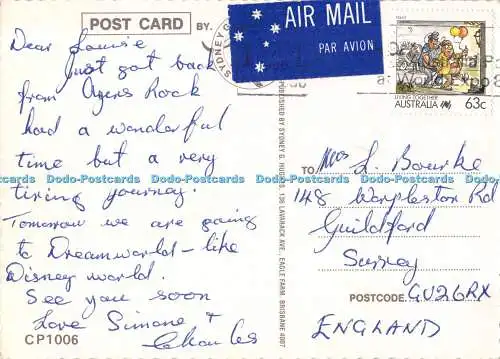 POST CARD
BY:
AIR MAIL
PAR AVION
SYDNEY
LIVING TOGETHER
AUSTRALIA 63c
Dear Louise
Just got back
from Ayers Rock
had a wonderful
time but a very
tiring journey.
Tomorrow we are going
to Dreamworld – like
Disney world.
See you soon
Love Simone &
Charles
CP1006
TO
Mrs L. Bourke
148 Worplesdon Rd
Guildford
Surrey
POSTCODE. GU26RX
ENGLAND
Dodo-Postcards Dodo-Postcards Dodo-Postcards Dodo-Postcards Dodo-Postcards